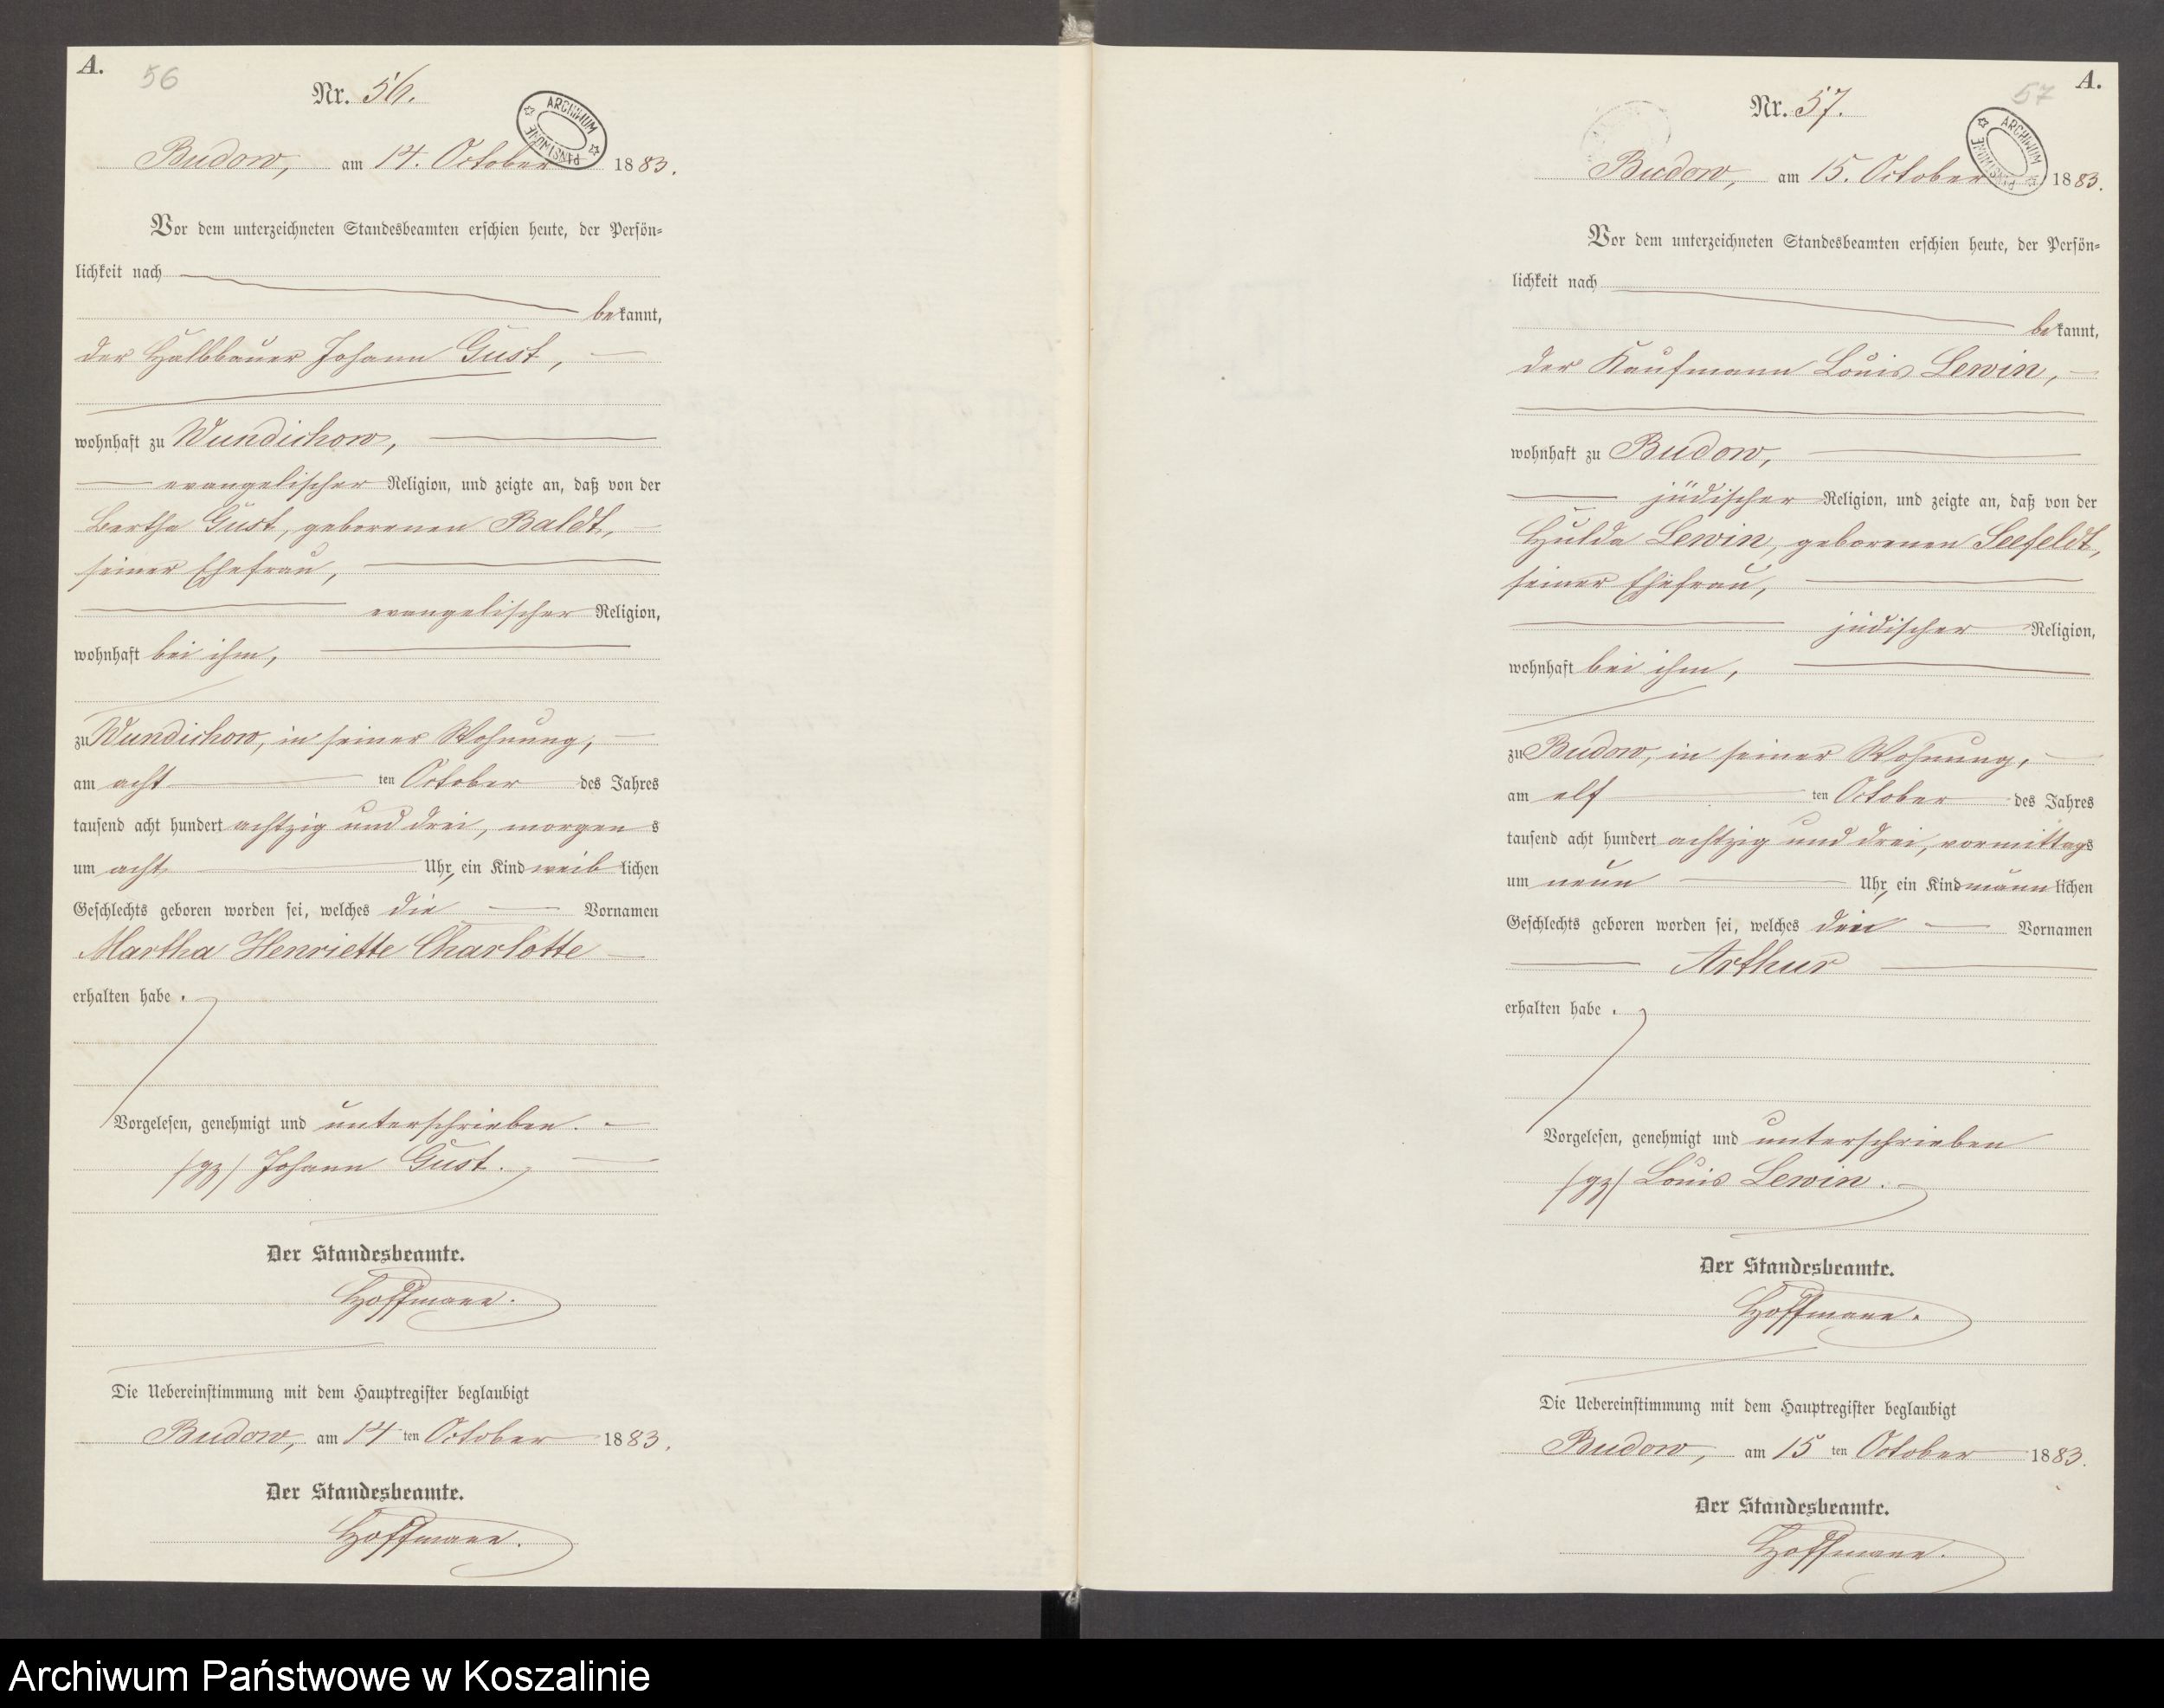 A.
56
Nr. 56.
ARCHIWUM PAŃSTWOWE
Budow, am 14. October 1883.
Vor dem unterzeichneten Standesbeamten erschien heute, der Persön-
lichkeit nach
bekannt,
der Halbbauer Johann Gust,
wohnhaft zu Wundichow,
evangelischer Religion, und zeigte an, daß von der
Bertha Gust, geborenen Baldt,
seiner Ehefrau,
evangelischer Religion,
wohnhaft bei ihm,
zu Wundichow, in seiner Wohnung,
am acht ten October des Jahres
tausend acht hundert achtzig und drei, morgens
um acht Uhr, ein Kind weiblichen
Geschlechts geboren worden sei, welches die Vornamen
Martha Henriette Charlotte
erhalten habe.
Vorgelesen, genehmigt und unterschrieben.
/gz/ Johann Gust.
Der Standesbeamte.
Hoffmann.
Die Uebereinstimmung mit dem Hauptregister beglaubigt
Budow, am 14 ten October 1883.
Der Standesbeamte.
Hoffmann.
A.
57
Nr. 57.
ARCHIWUM PAŃSTWOWE
Budow, am 15. October 1883.
Vor dem unterzeichneten Standesbeamten erschien heute, der Persön-
lichkeit nach
bekannt,
der Kaufmann Louis Lewin,
wohnhaft zu Budow,
jüdischer Religion, und zeigte an, daß von der
Hulda Lewin, geborenen Seefeldt,
seiner Ehefrau,
jüdischer Religion,
wohnhaft bei ihm,
zu Budow, in seiner Wohnung,
am elf ten October des Jahres
tausend acht hundert achtzig und drei, vormittags
um neun Uhr, ein Kind männlichen
Geschlechts geboren worden sei, welches den Vornamen
Arthur
erhalten habe.
Vorgelesen, genehmigt und unterschrieben
/gz/ Louis Lewin.
Der Standesbeamte.
Hoffmann.
Die Uebereinstimmung mit dem Hauptregister beglaubigt
Budow, am 15 ten October 1883.
Der Standesbeamte.
Hoffmann.
Archiwum Państwowe w Koszalinie